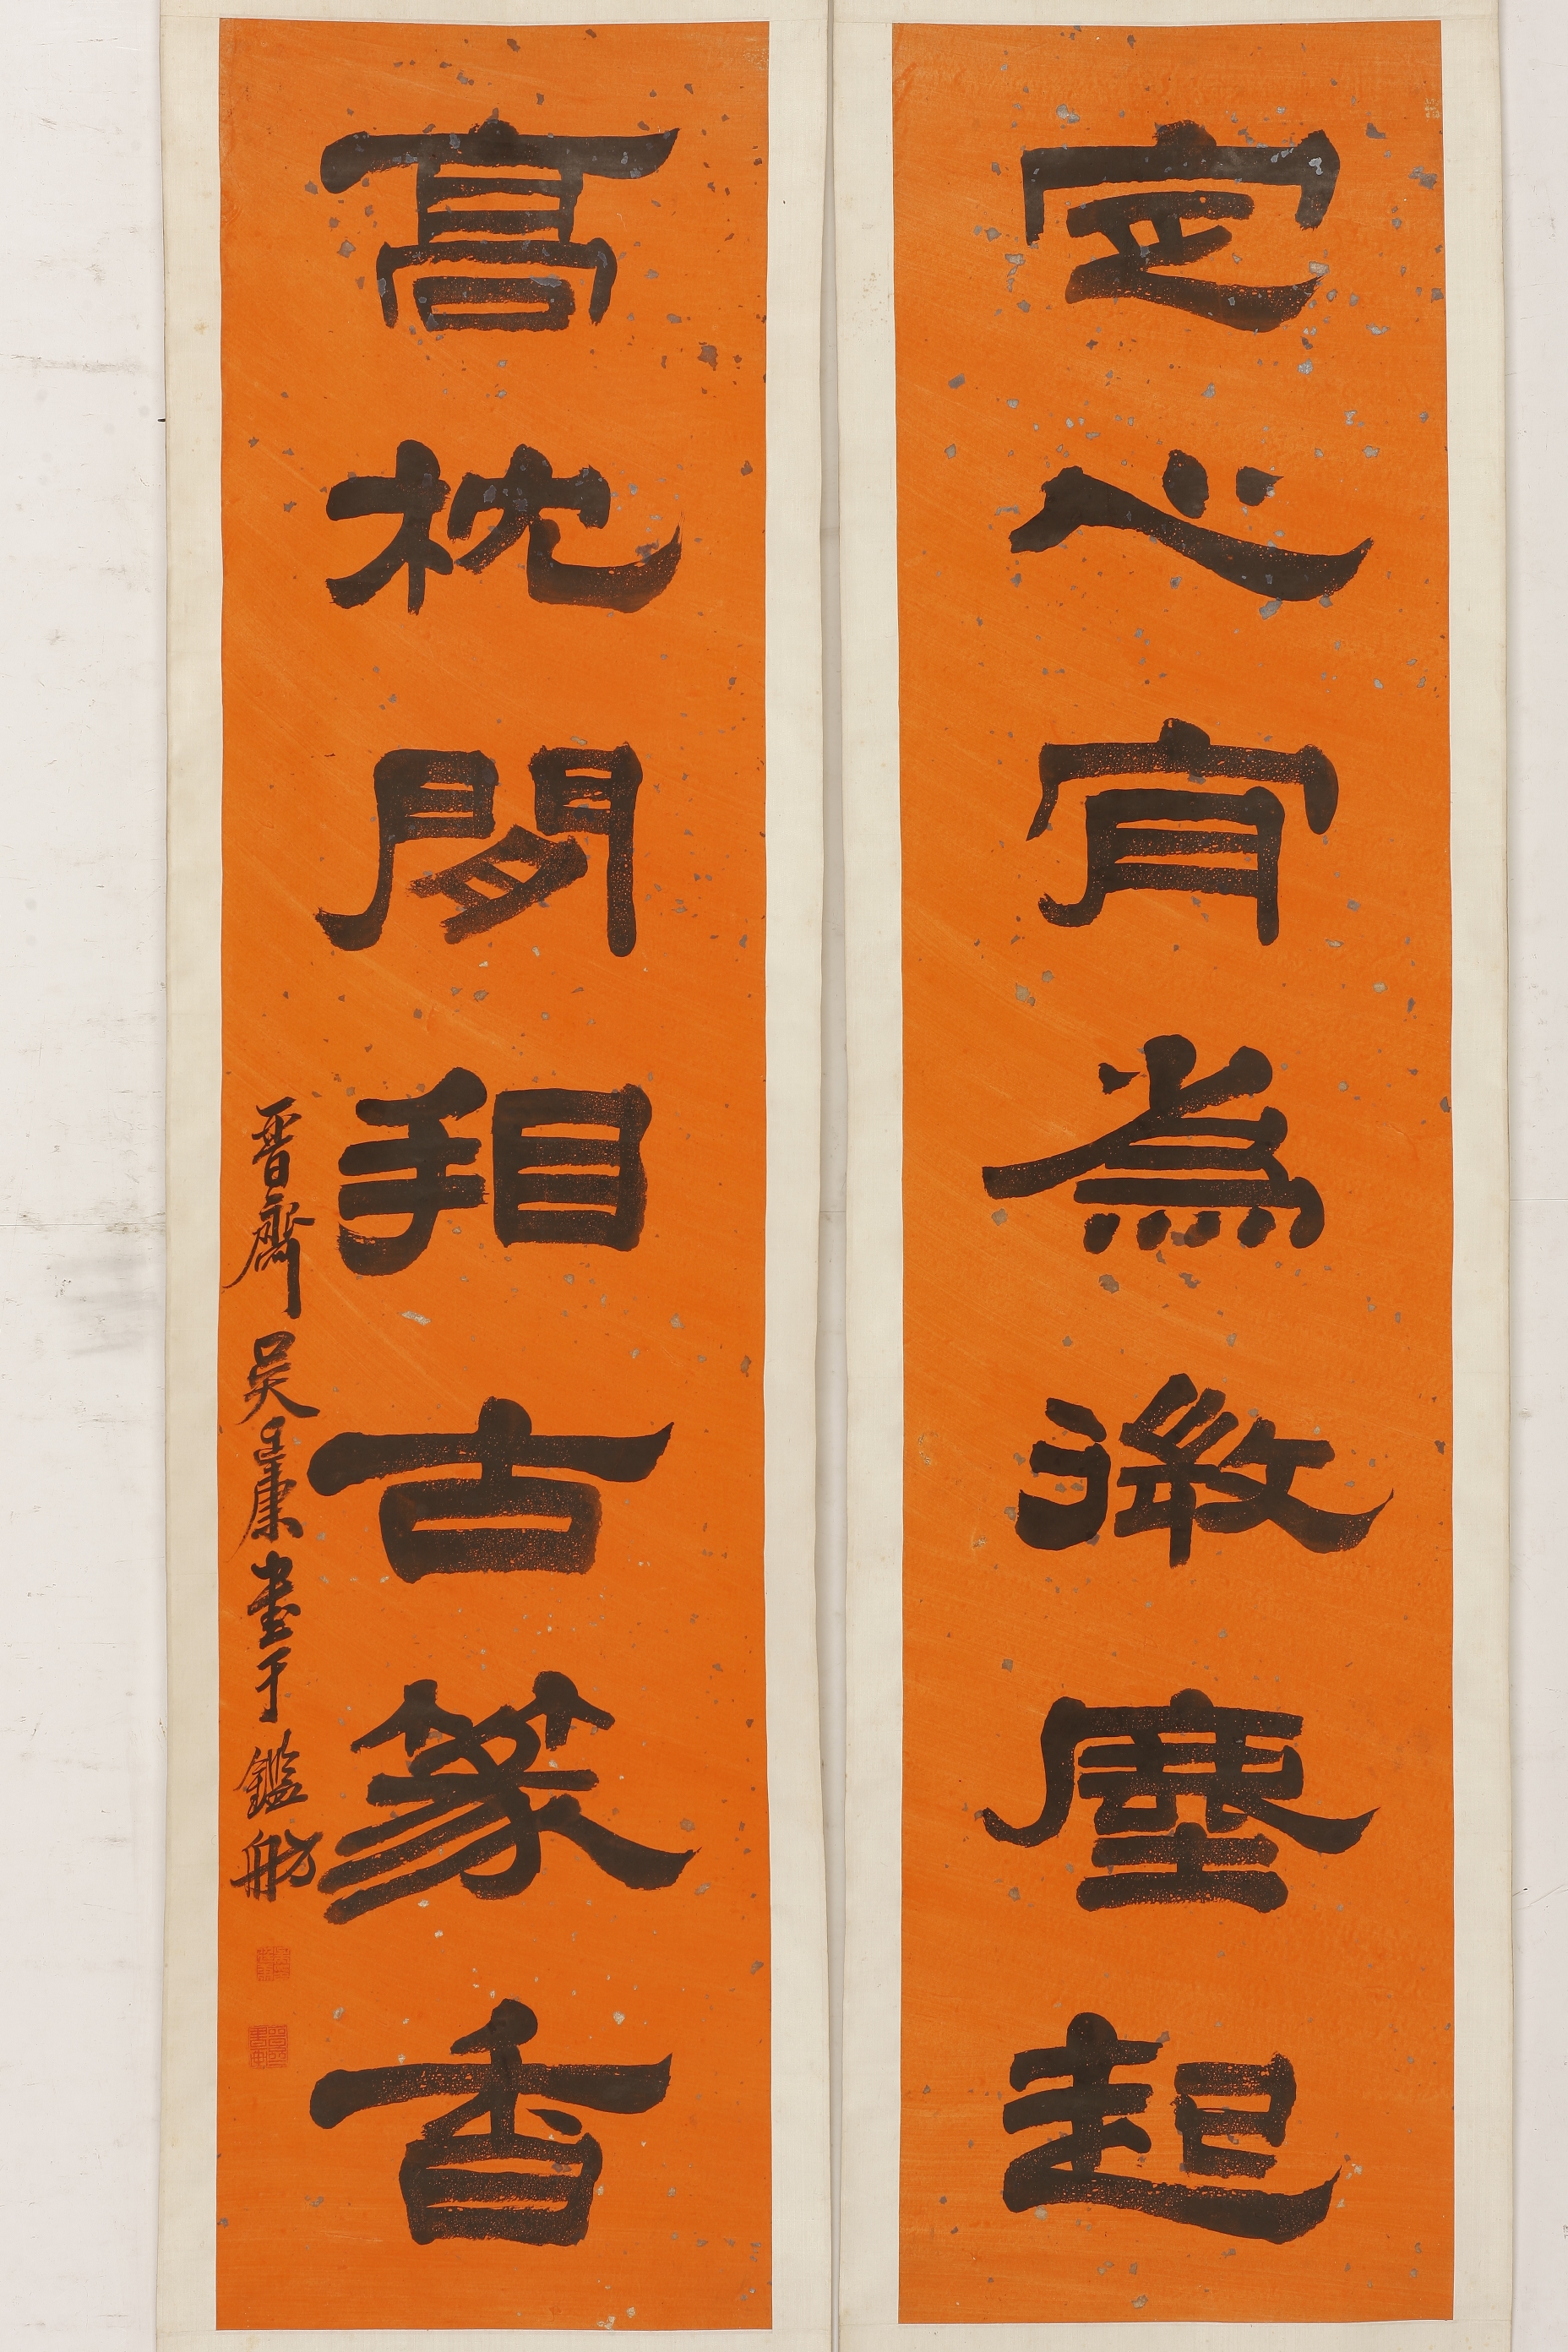 定心肎為微塵起
高枕閒看古篆香
晉齋吳廷康書于鑑舫